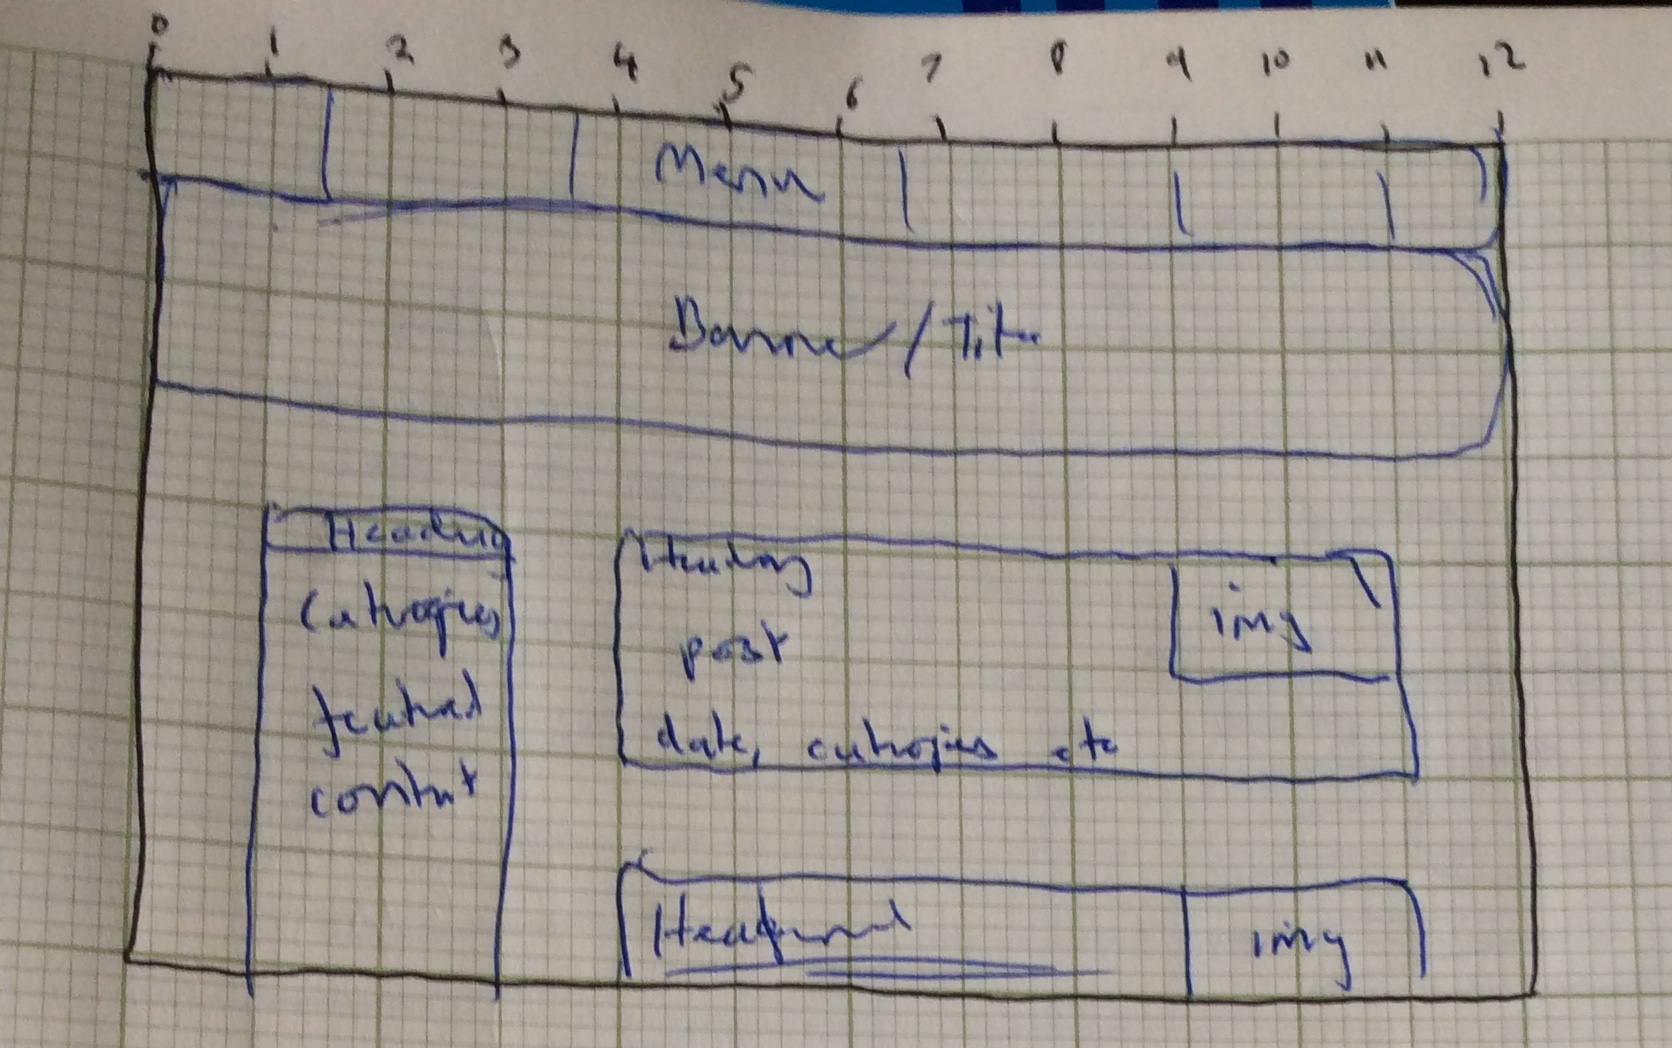 0 1 2 3 4 5 6 7 8 9 10 11 12
Menu
Banner / Title
Heading
Catrogies
featured
content
Heading
img
post
date, catrogies etc
img